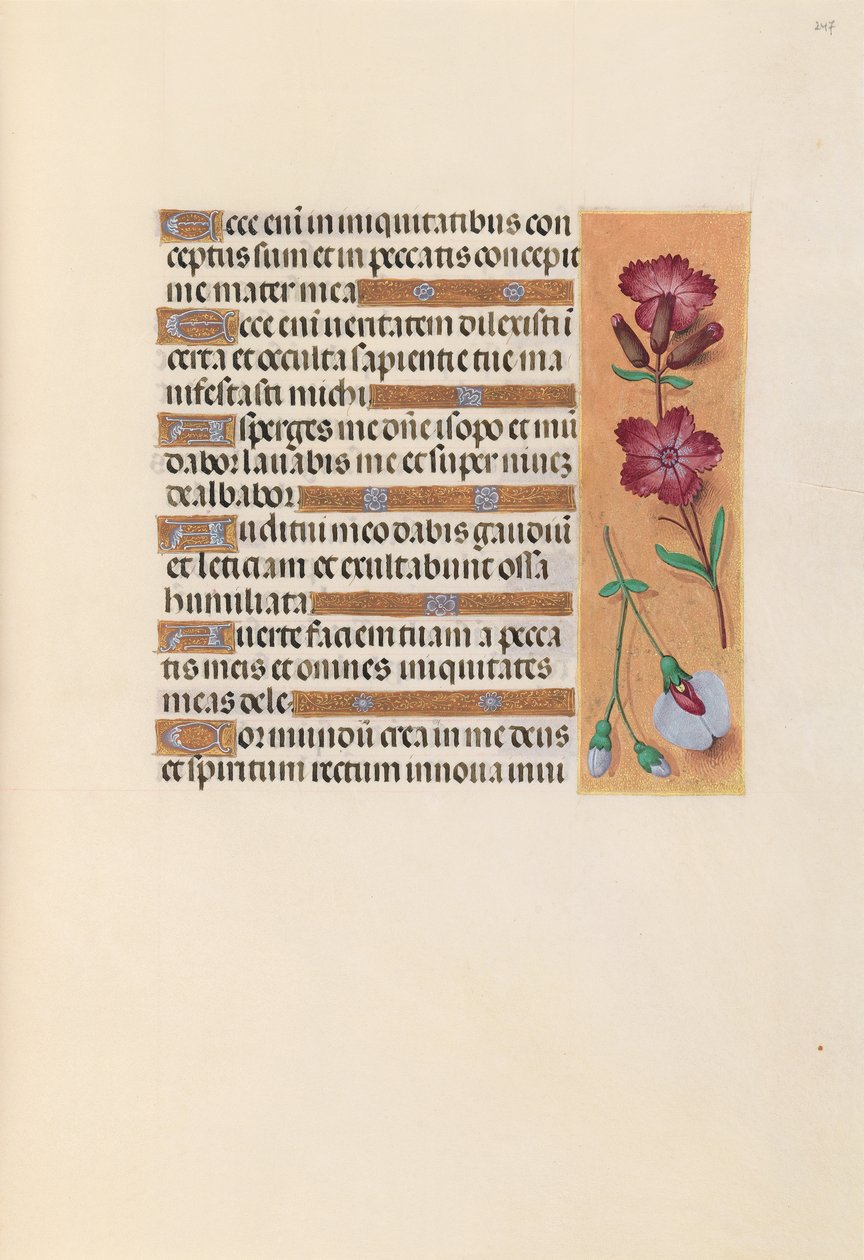 247
Ecce eni̅ in iniquitatibus con
ceptus sum et in peccatis concepit
me mater mea
Ecce eni̅ ueritatem dilexisti i̅
certa et occulta sapientie tue ma
nifestasti michi
Asperges me dn̅e isopo et mu̅
dabor lauabis me et super niueꝫ
dealbabor
Auditui meo dabis gaudiu̅
et leticiam et exultabunt ossa
humiliata
Auerte faciem tuam a pecca
tis meis et omnes iniquitates
meas dele
Cor mundu̅ crea in me deus
et spiritum rectum innoua in ui